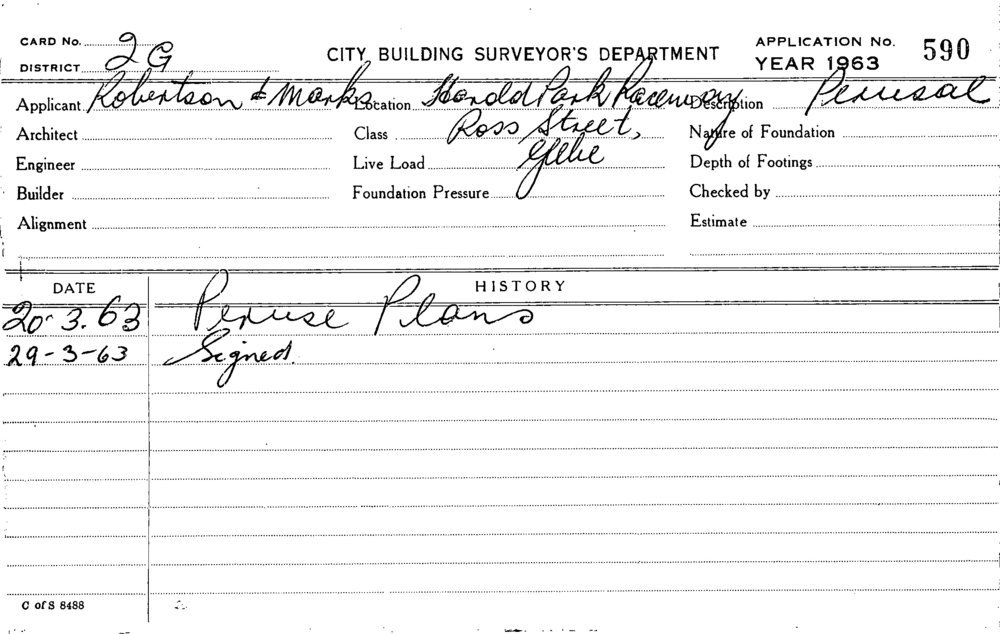 CARD No. 2 G
DISTRICT
CITY BUILDING SURVEYOR'S DEPARTMENT
APPLICATION No. 590
YEAR 1963
Applicant Robertson & Marks Location Harold Park Raceway Description Perusal
Architect Class Ross Street, Nature of Foundation
Engineer Live Load Glebe Depth of Footings
Builder Foundation Pressure Checked by
Alignment Estimate
DATE HISTORY
20-3.63 Peruse Plans
29-3-63 Signed
C of S 8488